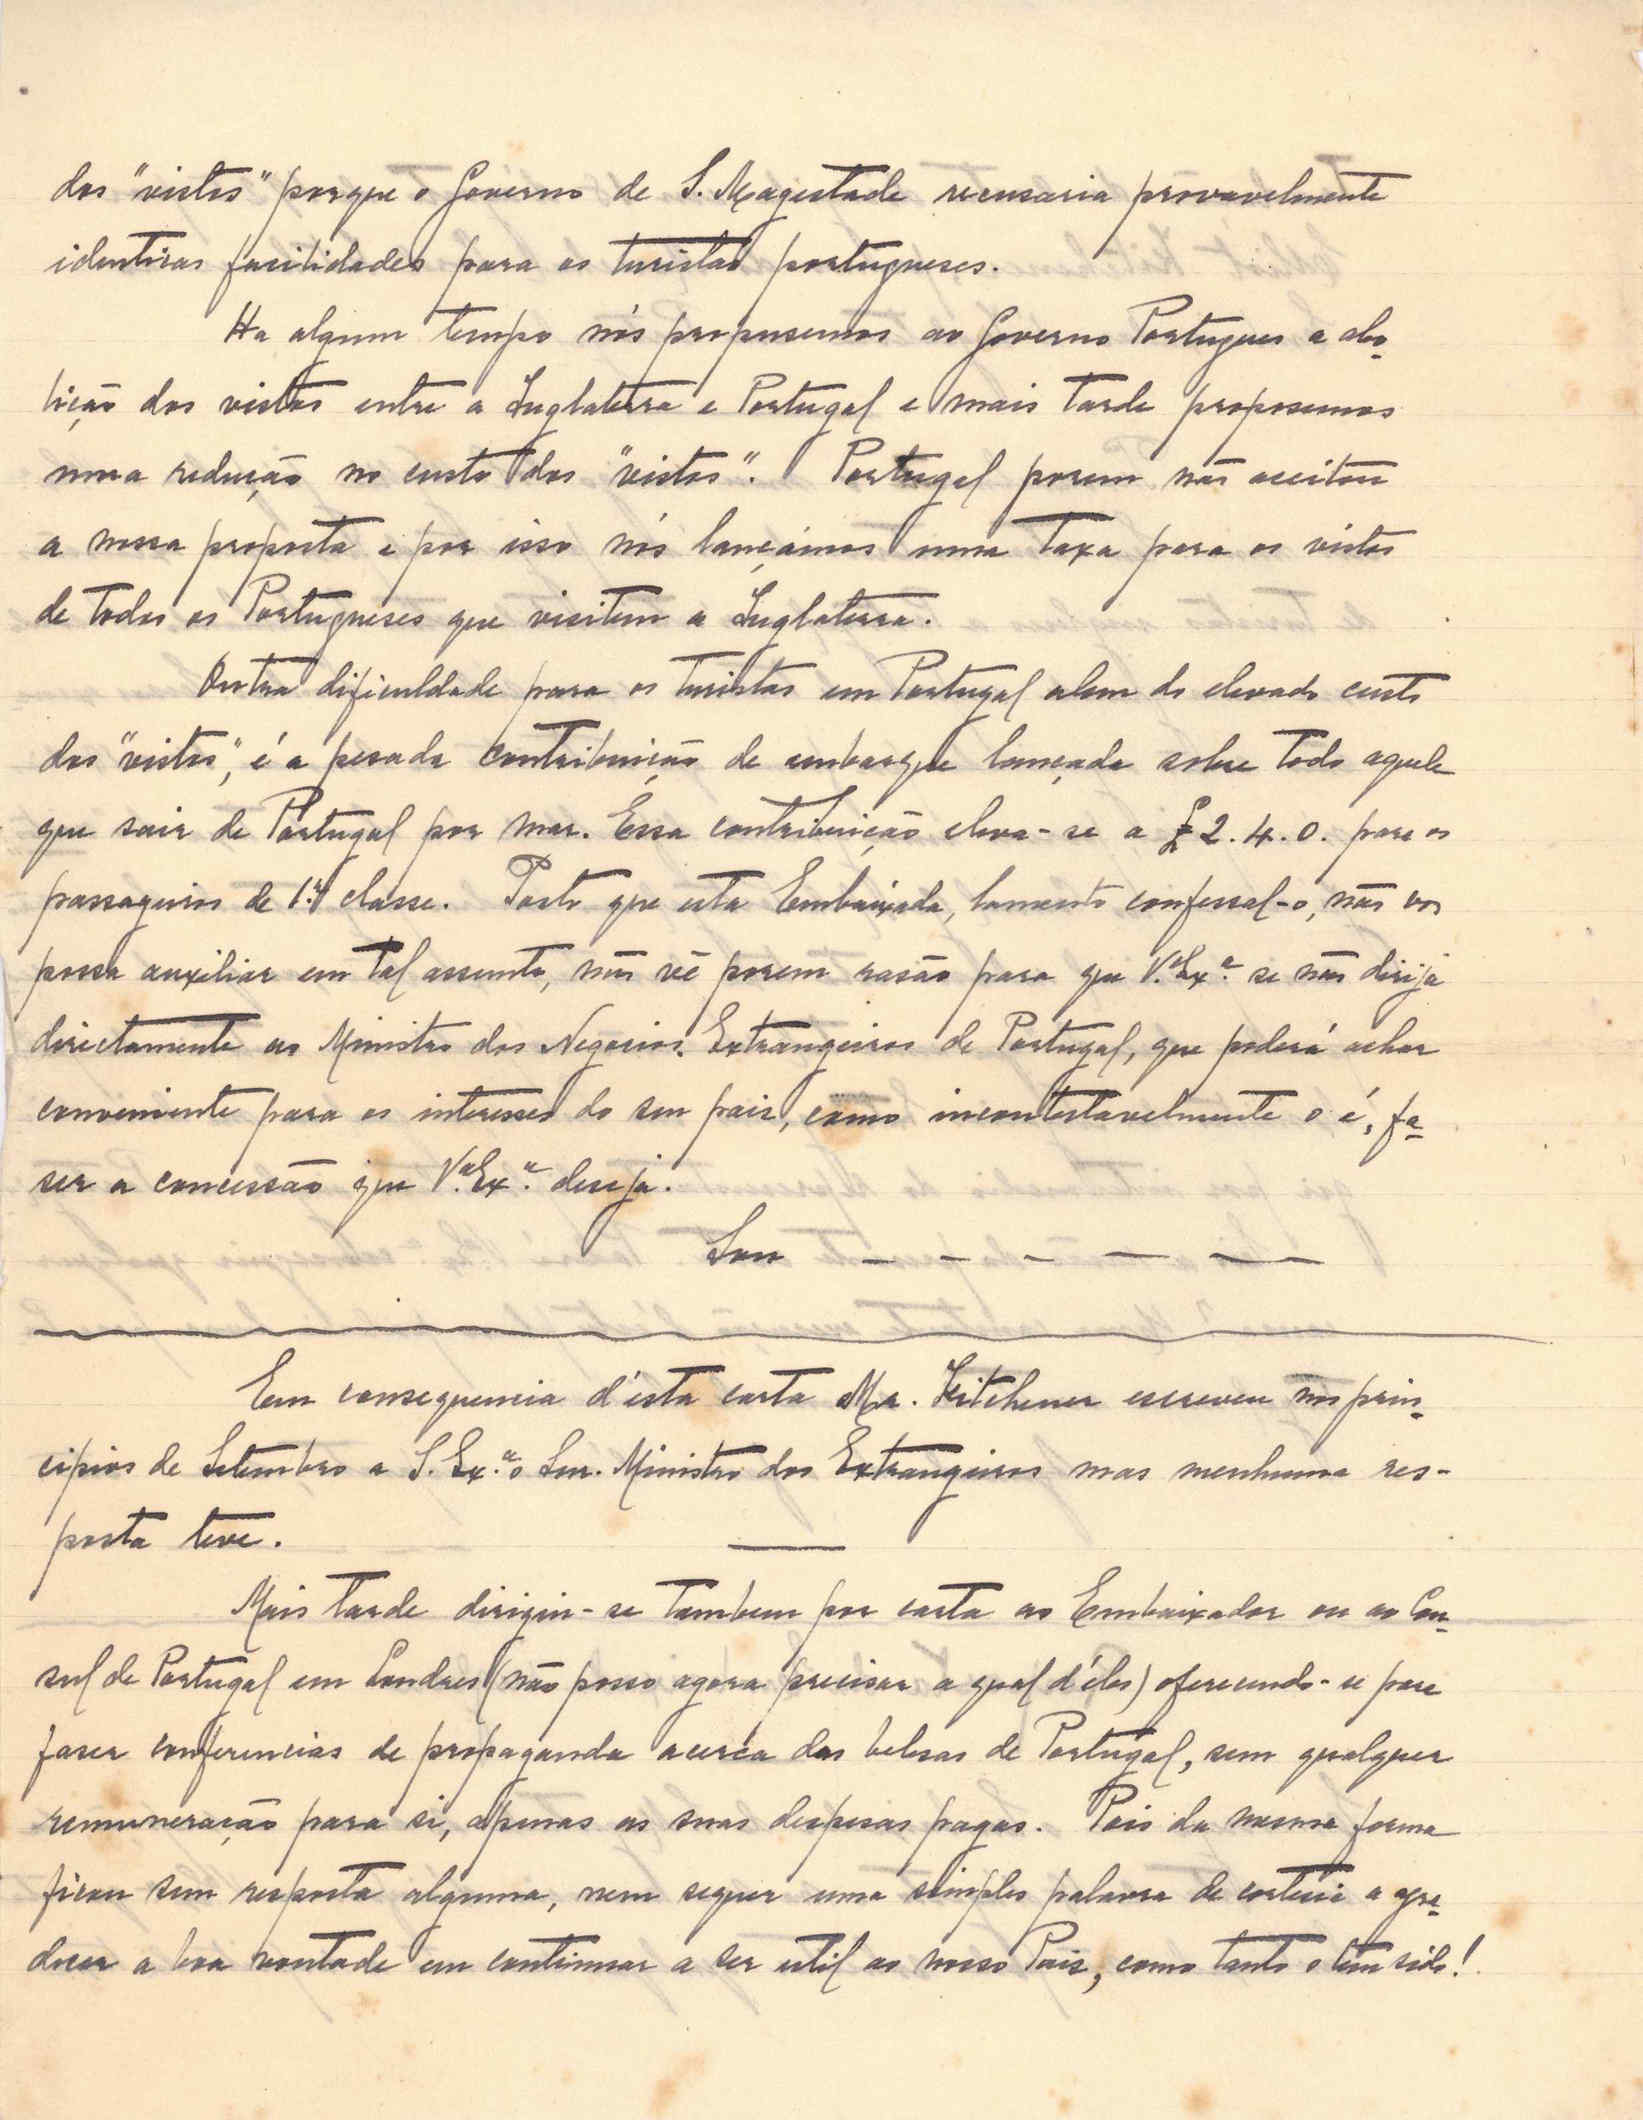 dos "vistos" porque o Governo de S. Magestade recusaria provavelmente
identicas facilidades para os turistas portugueses.
Ha algum tempo nós propusemos ao Governo Portugues a abo-
lição dos vistos entre a Inglaterra e Portugal e mais tarde proposemos
uma redução no custo dos "vistos". Portugal porem não aceitou
a nossa proposta e por isso nós lançámos uma taxa para os vistos
de todos os Portugueses que visitem a Inglaterra.
Outra dificuldade para os turistas em Portugal alem do elevado custo
dos "vistos", é a pesada contribuição de embarque lançada sobre todo aquele
que sair de Portugal por mar. Essa contribuição eleva-se a £2.4.0. para os
passageiros de 1.ª classe. Posto que esta Embaixada, lamento confessal-o, não vos
possa auxiliar em tal assunto, não vê porem rasão para que V.ª Ex.ª se não dirija
directamente ao Ministro dos Negocios Extrangeiros de Portugal, que poderá achar
conveniente para os interesses do seu pais, como incontestavelmente o é, fa-
ser a concessão que V.ª Ex.ª deseja.
Sou — — — — —
Em consequencia d'esta carta Mr. Kitchener escreveu nos prin-
cipios de Setembro a S. Ex.ª o Snr. Ministro dos Extrangeiros mas nenhuma res-
posta teve.
Mais tarde dirigiu-se tambem por carta ao Embaixador ou ao Con-
sul de Portugal em Londres (não posso agora precisar a qual d'eles) oferecendo-se para
faser conferencias de propaganda acerca das belesas de Portugal, sem qualquer
remuneração para si, apenas as suas despesas pagas. Pois da mesma forma
ficou sem resposta alguma, nem sequer uma simples palavra de cortesia a agra-
decer a boa vontade em continuar a ser util ao nosso Pais, como tanto o tem sido!